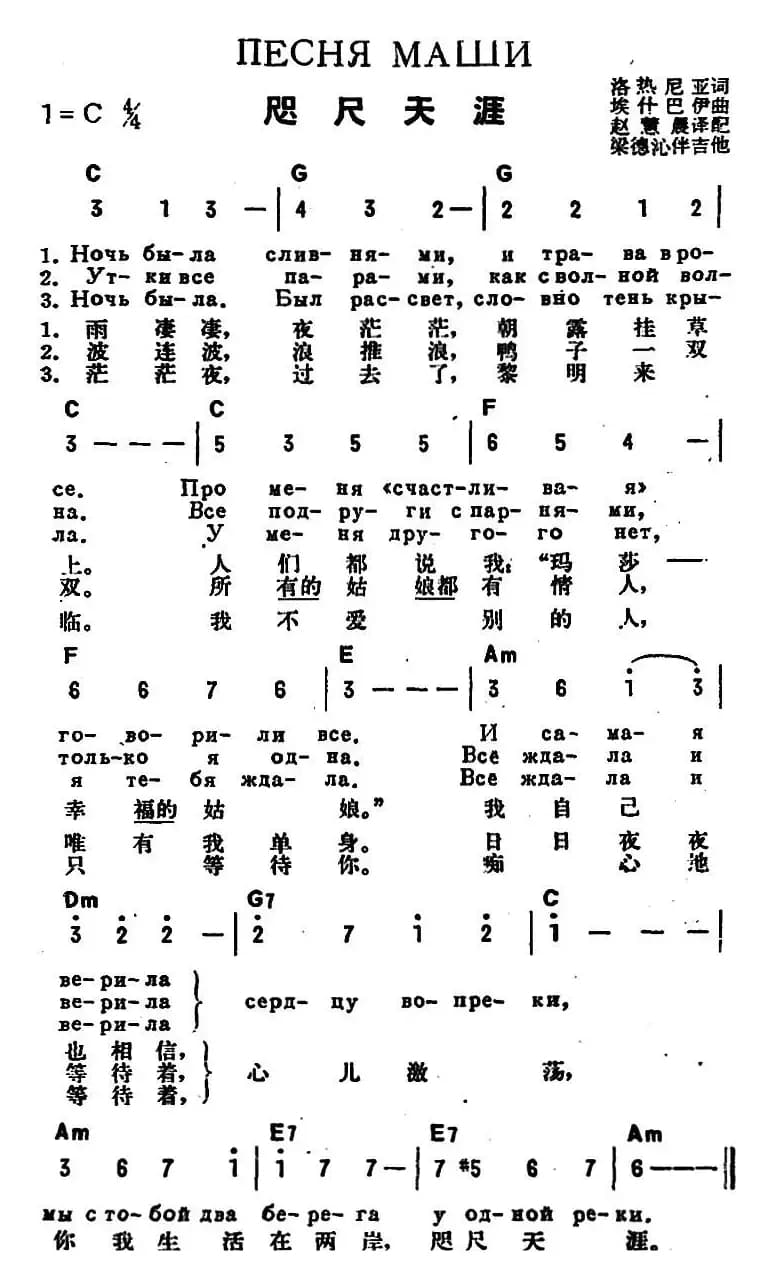 ПЕСНЯ МАШИ
咫尺天涯
1=C 4/4
洛热尼亚词
埃什巴伊曲
赵慧晨译配
梁德沁伴吉他
C G G
3 1 3 — | 4 3 2 — | 2 2 1 2 |
1. Ночь бы-ла слив-ня-ми, и тра-ва в ро-
2. Ут-ки все па-ра-ми, как с вол-ной вол-
3. Ночь бы-ла. Был рас-свет, сло-вно тень кры-
1. 雨凄凄,夜茫茫,朝露挂草
2. 波连波,浪推浪,鸭子一双
3. 茫茫夜,过去了,黎明来
C C F
3 — — — | 5 3 5 5 | 6 5 4 — |
се. Про ме-ня «счаст-ли-ва-я»
на. Все под-ру-ги с пар-ня-ми,
ла. У ме-ня дру-го-го нет,
上。人们都说我:“玛莎——
双。所有的姑娘都有情人,
临。我不爱别的人,
F E Am
6 6 7 6 | 3 — — — | 3 6 i 3 |
го-во-ри-ли все. И са-ма-я
толь-ко я од-на. Всё жда-ла и
я те-бя жда-ла. Все жда-ла и
幸福的姑娘。”我自己
唯有我单身。日日夜夜
只等待你。痴心地
Dm G7 C
3 2 2 — | 2 7 i 2 | i — — — |
ве-ри-ла
ве-ри-ла сердц-цу во-пре-ки,
ве-ри-ла
也相信,
等待着,心儿激荡,
等待着,
Am E7 E7 Am
3 6 7 i | i 7 7 — | 7 #5 6 7 | 6 — — — ‖
мы с то-бой два бе-ре-га у од-ной ре-ки.
你我生活在两岸,咫尺天涯。